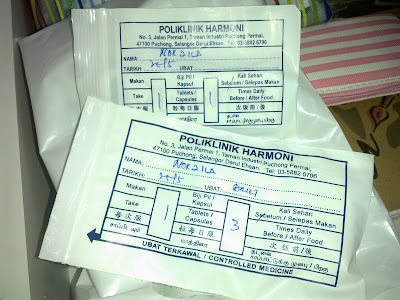 POLIKLINIK HARMONI
No. 3, Jalan Permai 1, Taman Industri Puchong Permai,
47100 Puchong, Selangor Darul Ehsan. Tel: 03-5882 6796
NAMA:
TARIKH: UBAT:
Makan Biji Pil / Kapsul Kali Sehari
Sebelum / Selepas Makan
Take 1 Tablets / Capsules 1 Times Daily
Before / After Food
每次服 粒每日服 次饭前/後
POLIKLINIK HARMONI
No. 3, Jalan Permai 1, Taman Industri Puchong Permai,
47100 Puchong, Selangor Darul Ehsan. Tel: 03-5882 6796
NAMA: NORZILA
TARIKH: UBAT:
Makan Biji Pil / Kapsul Kali Sehari
Sebelum / Selepas Makan
Take 1 Tablets / Capsules 3 Times Daily
Before / After Food
每次服 粒每日服 次饭前/後
சாப்பிடவும் மாத்திரை
UBAT TERKAWAL / CONTROLLED MEDICINE